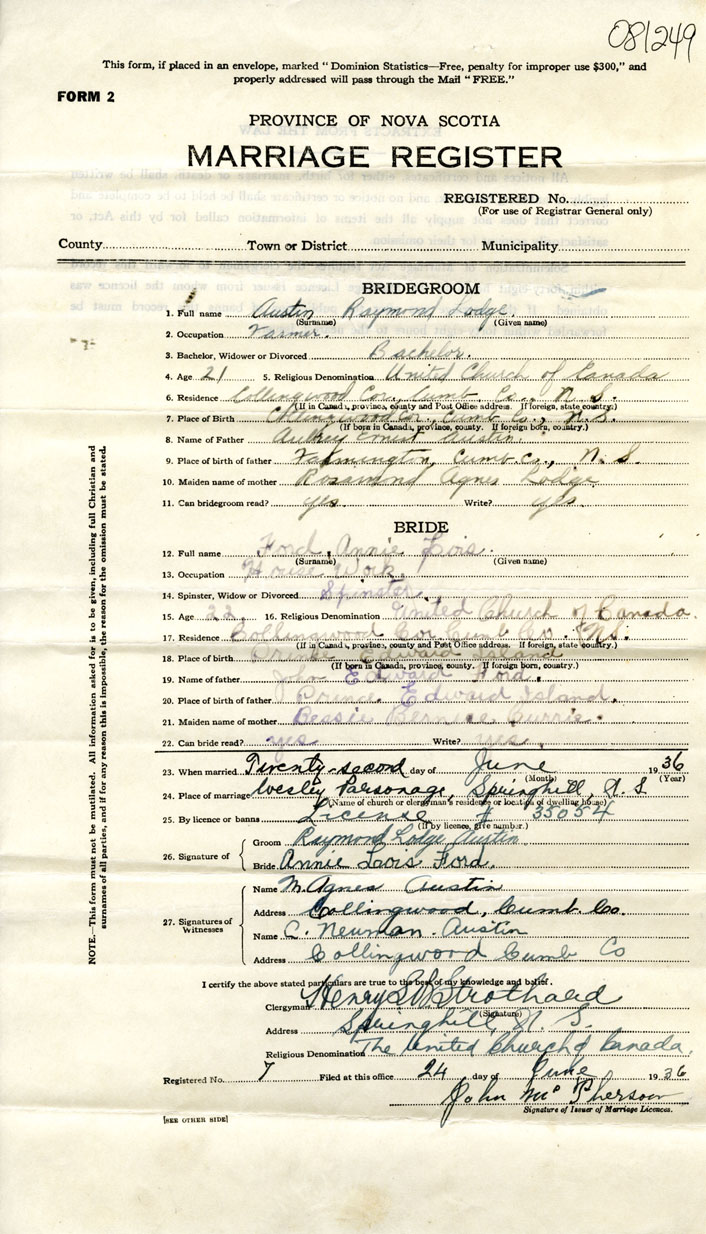 081249
This form, if placed in an envelope, marked "Dominion Statistics—Free, penalty for improper use $300," and
properly addressed will pass through the Mail "FREE."
FORM 2
PROVINCE OF NOVA SCOTIA
MARRIAGE REGISTER
REGISTERED No.
(For use of Registrar General only)
County Town or District Municipality
BRIDEGROOM
1. Full name Austin Raymond Lodge.
(Surname) (Given name)
2. Occupation Farmer.
3. Bachelor, Widower or Divorced Bachelor.
4. Age 21 5. Religious Denomination United Church of Canada
6. Residence Collingwood Cor., Cumb. Co., N. S.
(If in Canada, province, county and Post Office address. If foreign, state country.)
7. Place of Birth Collingwood Cor., Cumb. Co., N. S.
(If born in Canada, province, county. If foreign born, country.)
8. Name of Father Aubrey Ernest Austin.
9. Place of birth of father Farmington, Cumb. Co., N. S.
10. Maiden name of mother Rosamond Agnes Lodge
11. Can bridegroom read? yes. Write? yes.
BRIDE
12. Full name Ford, Annie Lois.
(Surname) (Given name)
13. Occupation House Work.
14. Spinster, Widow or Divorced Spinster.
15. Age 22. 16. Religious Denomination United Church of Canada.
17. Residence Collingwood Cor Cumb Co. N.S.
(If in Canada, province, county and Post Office address. If foreign, state country.)
18. Place of birth Prince Edward Island
(If born in Canada, province, county. If foreign born, country.)
19. Name of father John Edward Ford.
20. Place of birth of father Prince Edward Island.
21. Maiden name of mother Bessie Bernice Burris.
22. Can bride read? yes Write? yes.
23. When married Twenty-second day of June 1936
(Month) (Year)
24. Place of marriage Wesley Parsonage, Springhill, N. S
(Name of church or clergyman's residence or location of dwelling house)
25. By licence or banns License # 35054
(If by licence, give number.)
26. Signature of
Groom Raymond Lodge Austin
Bride Annie Lois Ford.
27. Signatures of Witnesses
Name M. Agnes Austin
Address Collingwood, Cumb. Co.
Name C. Neuman Austin
Address Collingwood Cumb Co
I certify the above stated particulars are true to the best of my knowledge and belief.
Clergyman Henry Strothard
(Signature)
Address Springhill, N. S.
Religious Denomination The United Church of Canada.
Registered No. 7 Filed at this office 24 day of June 1936
John McPherson
Signature of Issuer of Marriage Licences.
[SEE OTHER SIDE]
NOTE.—This form must not be mutilated. All information asked for is to be given, including full Christian and
surnames of all parties, and if for any reason this is impossible, the reason for the omission must be stated.